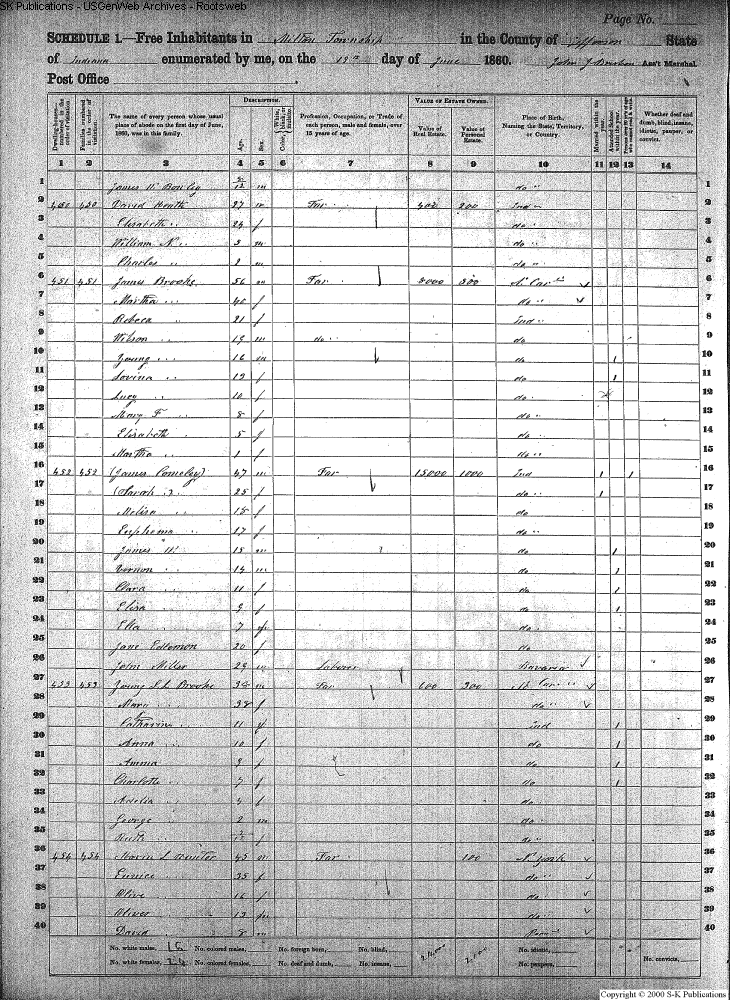 SK Publications - USGenWeb Archives - Rootsweb
Page No.
SCHEDULE 1.—Free Inhabitants in Milton Township in the County of Jefferson State
of Indiana enumerated by me, on the 19th day of June 1860. John J Ass't Marshal.
Post Office
DESCRIPTION. VALUE OF ESTATE OWNED.
Dwelling-houses— numbered in the order of visitation.
Families numbered in the order of visitation.
The name of every person whose usual place of abode on the first day of June, 1860, was in this family.
Age.
Sex.
Color, White, black, or mulatto.
Profession, Occupation, or Trade of each person, male and female, over 15 years of age.
Value of Real Estate.
Value of Personal Estate.
Place of Birth, Naming the State, Territory, or Country.
Married within the year.
Attended School within the year.
Whether deaf and dumb, blind, insane, idiotic, pauper, or convict.
1 2 3 4 5 6 7 8 9 10 11 12 13 14
1 James W m do " 1
2 450 450 David Heath 27 m Far 400 200 Ind 2
3 Elizabeth " 24 f do " 3
4 William N. " 3 m do " 4
5 Charles " 2 m do " 5
6 451 451 James Brooke 56 m Far 8000 800 N. Car 6
7 Martha " 40 f do " 7
8 Rebeca " 21 f Ind " 8
9 Wilson " 19 m do " do 9
10 Young " 16 m do 1 10
11 Lovina " 12 f do 1 11
12 Lucy " 10 f do 12
13 Mary F " 8 f do " 13
14 Elizabeth " 5 f do " 14
15 Martha " 1 f do " 15
16 452 452 (James Comeley) 47 m Far 15000 1000 Ind 1 1 16
17 (Sarah ") 25 f do " 1 17
18 Melisa " 18 f do 18
19 Euphema " 17 f do " 19
20 James W 15 m do 1 20
21 Vernon " 14 m do 1 21
22 Clara " 11 f do 1 22
23 Eliza " 9 f do 1 23
24 Ella " 7 f do 24
25 Jane Edleman 20 f do 25
26 John Miller 29 m Laborer Bavaria 26
27 453 453 Young S. L. Brooke 38 m Far 600 300 N. Car " 27
28 Mary " 38 f do " 28
29 Catharine " 11 f Ind 1 29
30 Anna " 10 f do 1 30
31 Amma " 9 f do 1 31
32 Charlotte " 7 f do 1 32
33 Adelia " 4 f do 33
34 George " 2 m do 34
35 Ruth " f do " 35
36 454 454 L Hunter 45 m Far 100 N. York 36
37 Eunice " 35 f do " 37
38 Olive " 16 f do 38
39 Oliver " 13 m do 39
40 David " 8 m 40
No. white males, 16 No. colored males, No. foreign born, No. blind, No. idiotic,
No. white females, 24 No. colored females, No. deaf and dumb, No. insane, No. paupers, No. convicts,
Copyright © 2000 S-K Publications